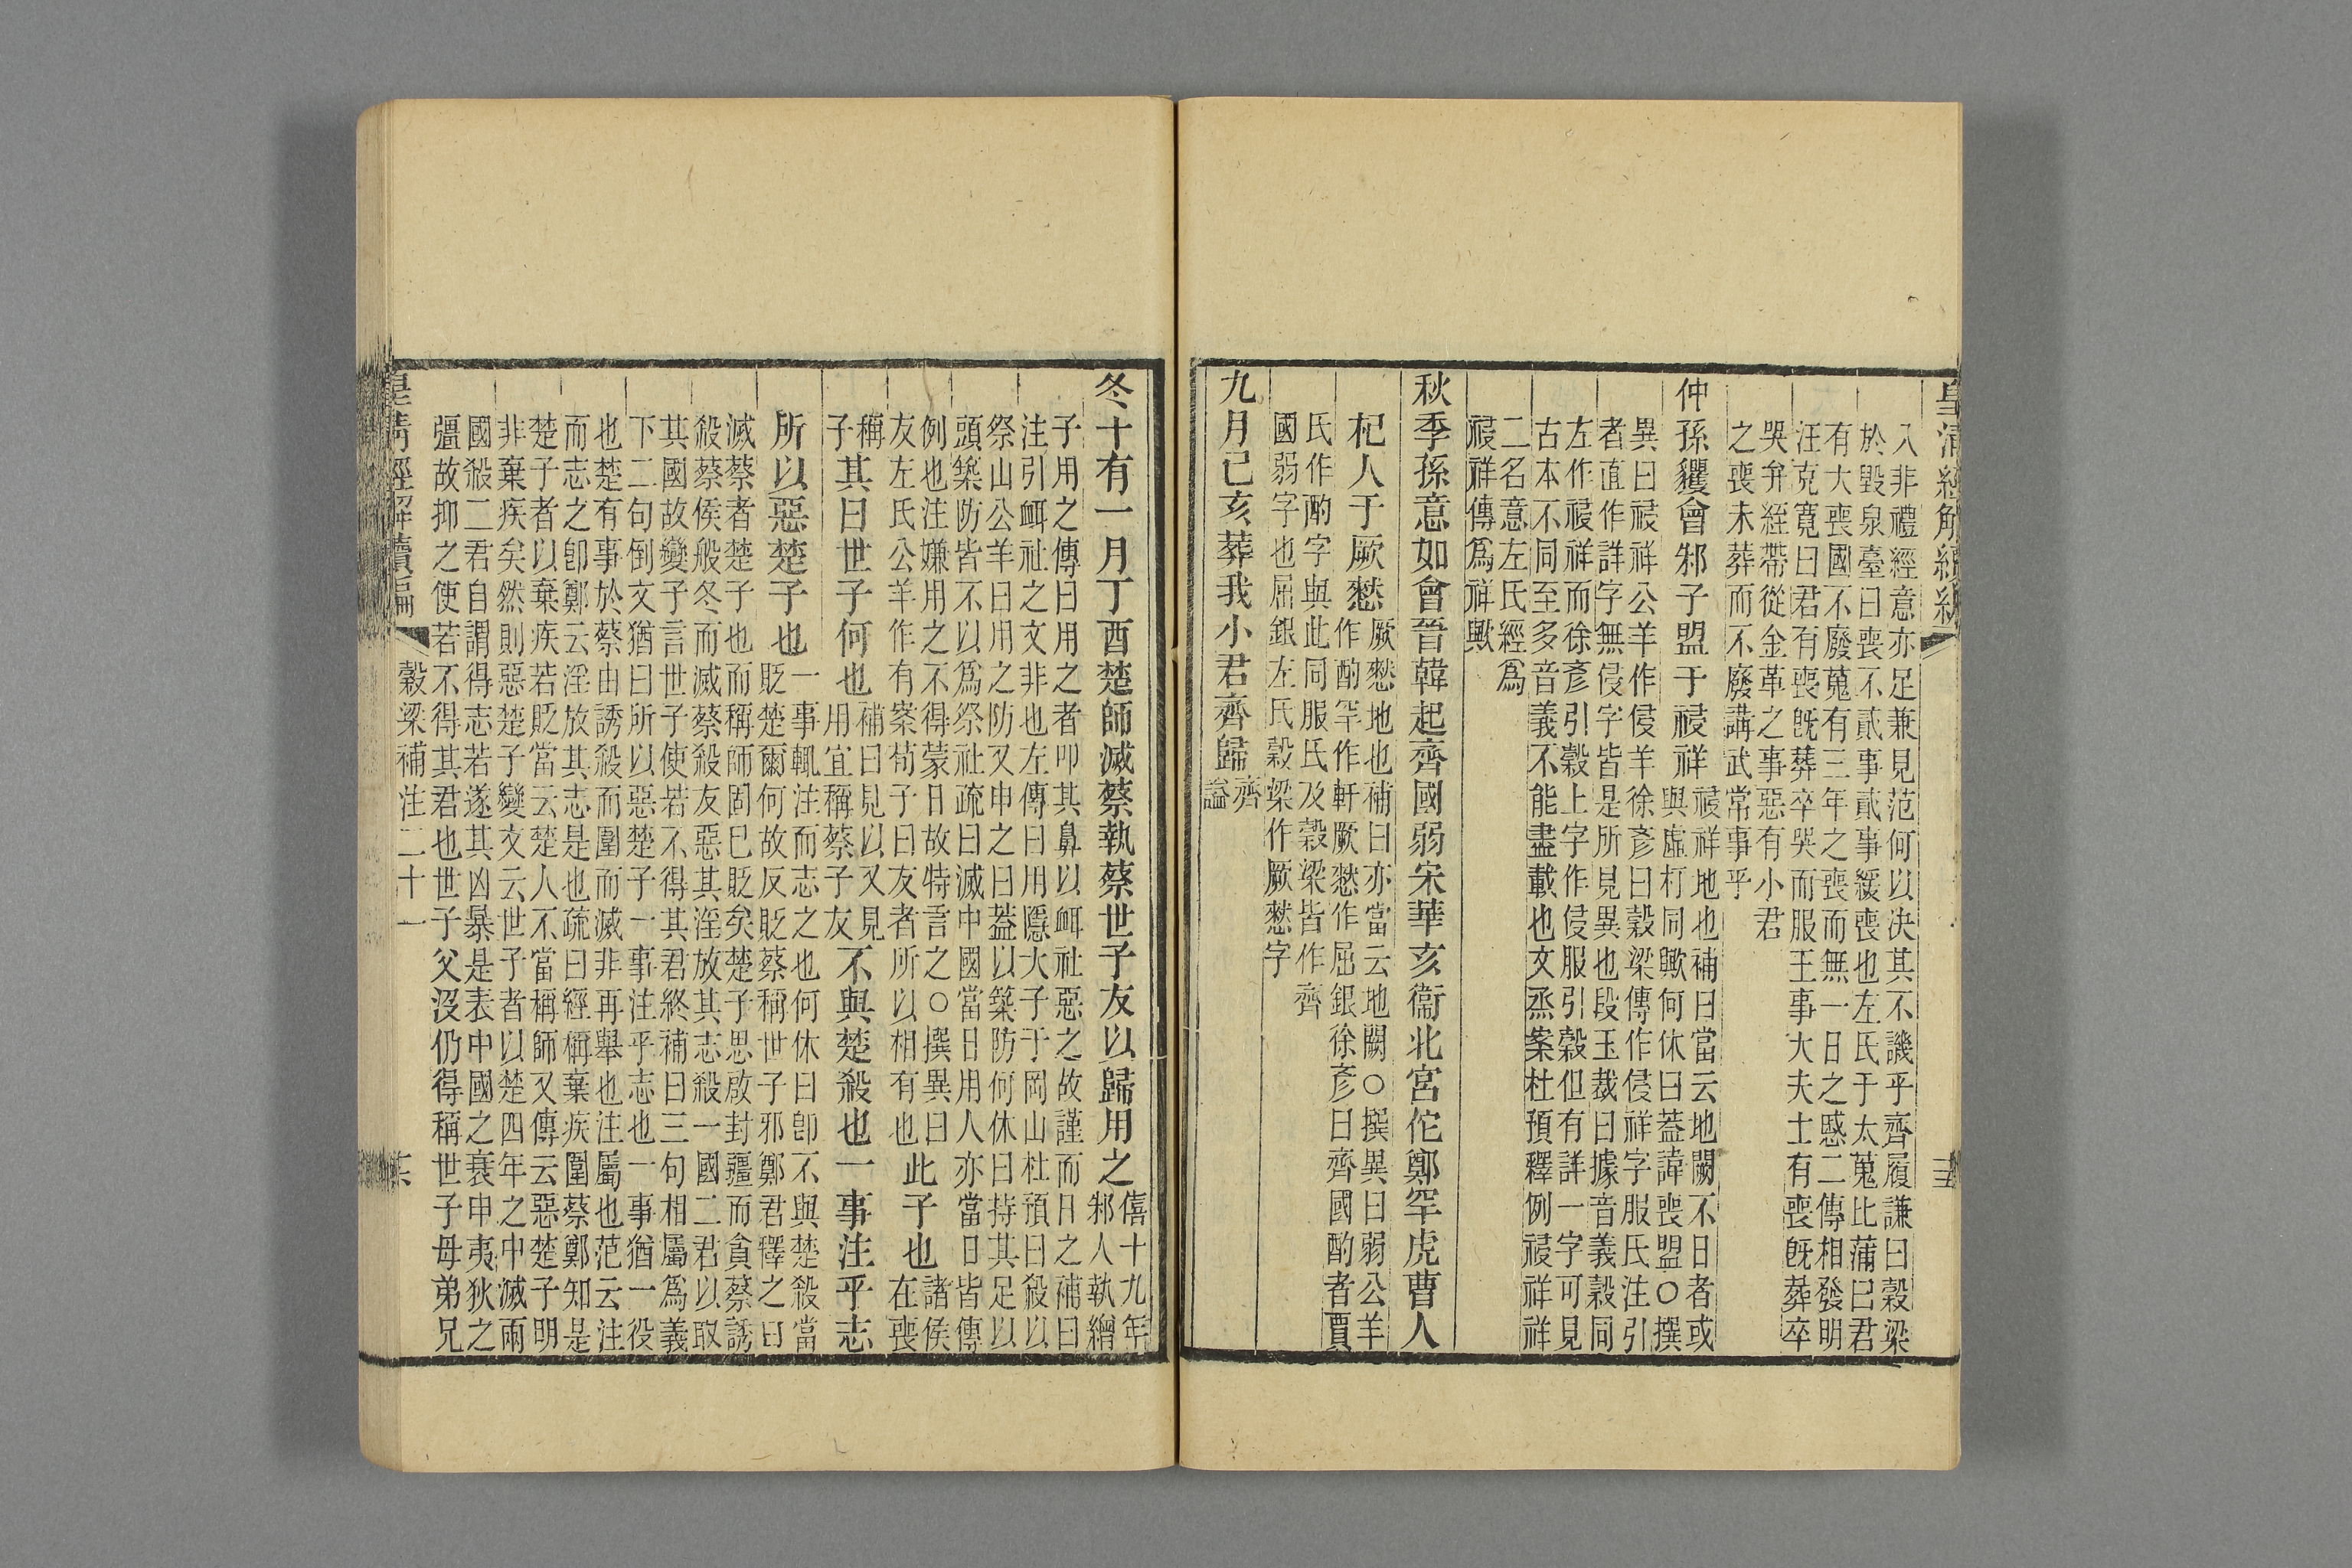 皇清經解續編
十五
入非禮經意亦足兼見范何以決其不譏乎齊履謙曰穀梁
於毀泉臺曰喪不貳事貳事緩喪也左氏于太蒐比蒲曰君
有大喪國不廢蒐有三年之喪而無一日之慼二傳相發明
汪克寬曰君有喪旣葬卒哭而服王事大夫士有喪旣葬卒
哭弁絰帶從金革之事惡有小君
之喪未葬而不廢講武常事乎
仲孫貜會邾子盟于祲祥
祲祥地也補曰當云地闕不日者或
與虛朾同歟何休曰蓋諱喪盟○撰
異曰祲祥公羊作侵羊徐彥曰穀梁傳作侵祥字服氏注引
者直作詳字無侵字皆是所見異也段玉裁曰據音義穀同
左作祲祥而徐彥引穀上字作侵服引穀但有詳一字可見
古本不同至多音義不能盡載也文烝案杜預釋例祲祥祥
二名意左氏經爲
祲祥傳爲祥歟
秋季孫意如會晉韓起齊國弱宋華亥衞北宮佗鄭罕虎曹人
杞人于厥憖
厥憖地也補曰亦當云地闕○撰異曰弱公羊
作酌罕作軒厥憖作屈銀徐彥曰齊國酌者賈
氏作酌字與此同服氏及穀梁皆作齊
國弱字也屈銀左氏穀梁作厥憖字
九月己亥葬我小君齊歸
齊
謚
冬十有一月丁酉楚師滅蔡執蔡世子友以歸用之
僖十九年
邾人執繒
子用之傳曰用之者叩其鼻以衈社惡之故謹而日之補曰
注引衈社之文非也左傳曰用隱大子于岡山杜預曰殺以
祭山公羊曰用之防又申之曰蓋以築防何休曰持其足以
頭築防皆不以爲祭社疏曰滅中國當日用人亦當日皆傳
例也注嫌用之不得蒙日故特言之○撰異曰
友左氏公羊作有案荀子曰友者所以相有也
此子也
諸侯
在喪
稱
子
其曰世子何也
補曰見以又見
用宜稱蔡子友
不與楚殺也一事注乎志
所以惡楚子也
一事輒注而志之也何休曰卽不與楚殺當
貶楚爾何故反貶蔡稱世子邪鄭君釋之曰
滅蔡者楚子也而稱師固已貶矣楚子思啟封疆而貪蔡誘
殺蔡侯般冬而滅蔡殺友惡其淫放其志殺一國二君以取
其國故變子言世子使若不得其君終補曰三句相屬爲義
下二句倒文猶曰所以惡楚子一事注乎志也一事猶一役
也楚有事於蔡由誘殺而圍而滅非再舉也注屬也范云注
而志之卽鄭云淫放其志是也疏曰經稱棄疾圍蔡鄭知是
楚子者以棄疾若貶當云楚人不當稱師又傳云惡楚子明
非棄疾矣然則惡楚子變文云世子者以楚四年之中滅兩
國殺二君自謂得志若遂其凶暴是表中國之衰申夷狄之
彊故抑之使若不得其君也世子父沒仍得稱世子母弟兄
皇清經解續編
穀梁補注二十一